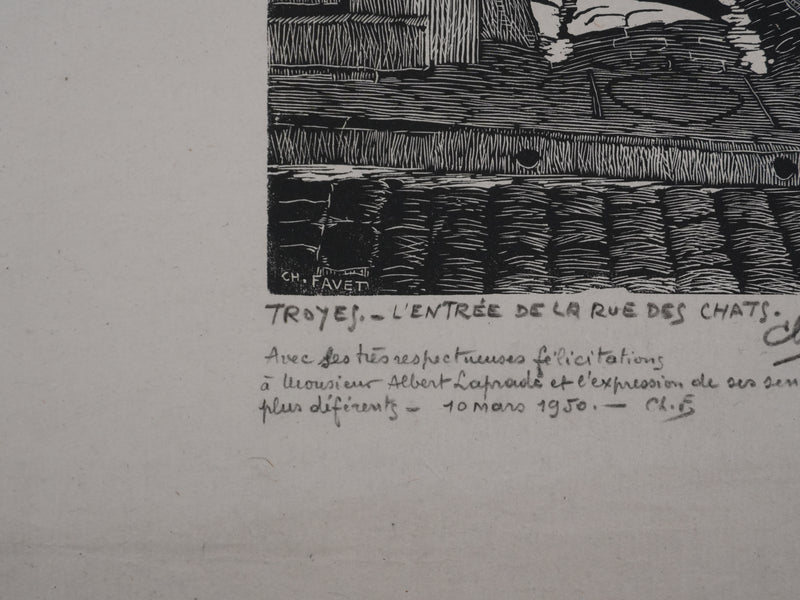 CH. FAVET
TROYES. - L'ENTRÉE DE LA RUE DES CHATS.
Avec ses très respectueuses félicitations
à Monsieur Albert Laprade et l'expression de ses sen
plus déférents - 10 mars 1950. - Ch. F.